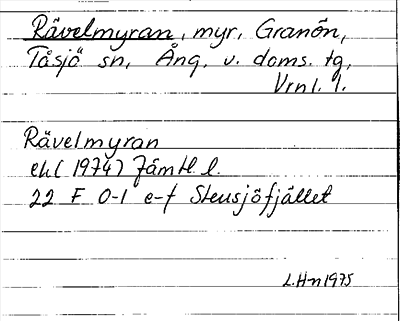 Rävelmyran, myr, Granön,
Tåsjö sn, Ång. v. doms. tg,
Vrnl. l.
Rävelmyran
ek (1974) Jämtl. l.
22 F 0-1 e-f Stensjöfjället
L.H-n 1975